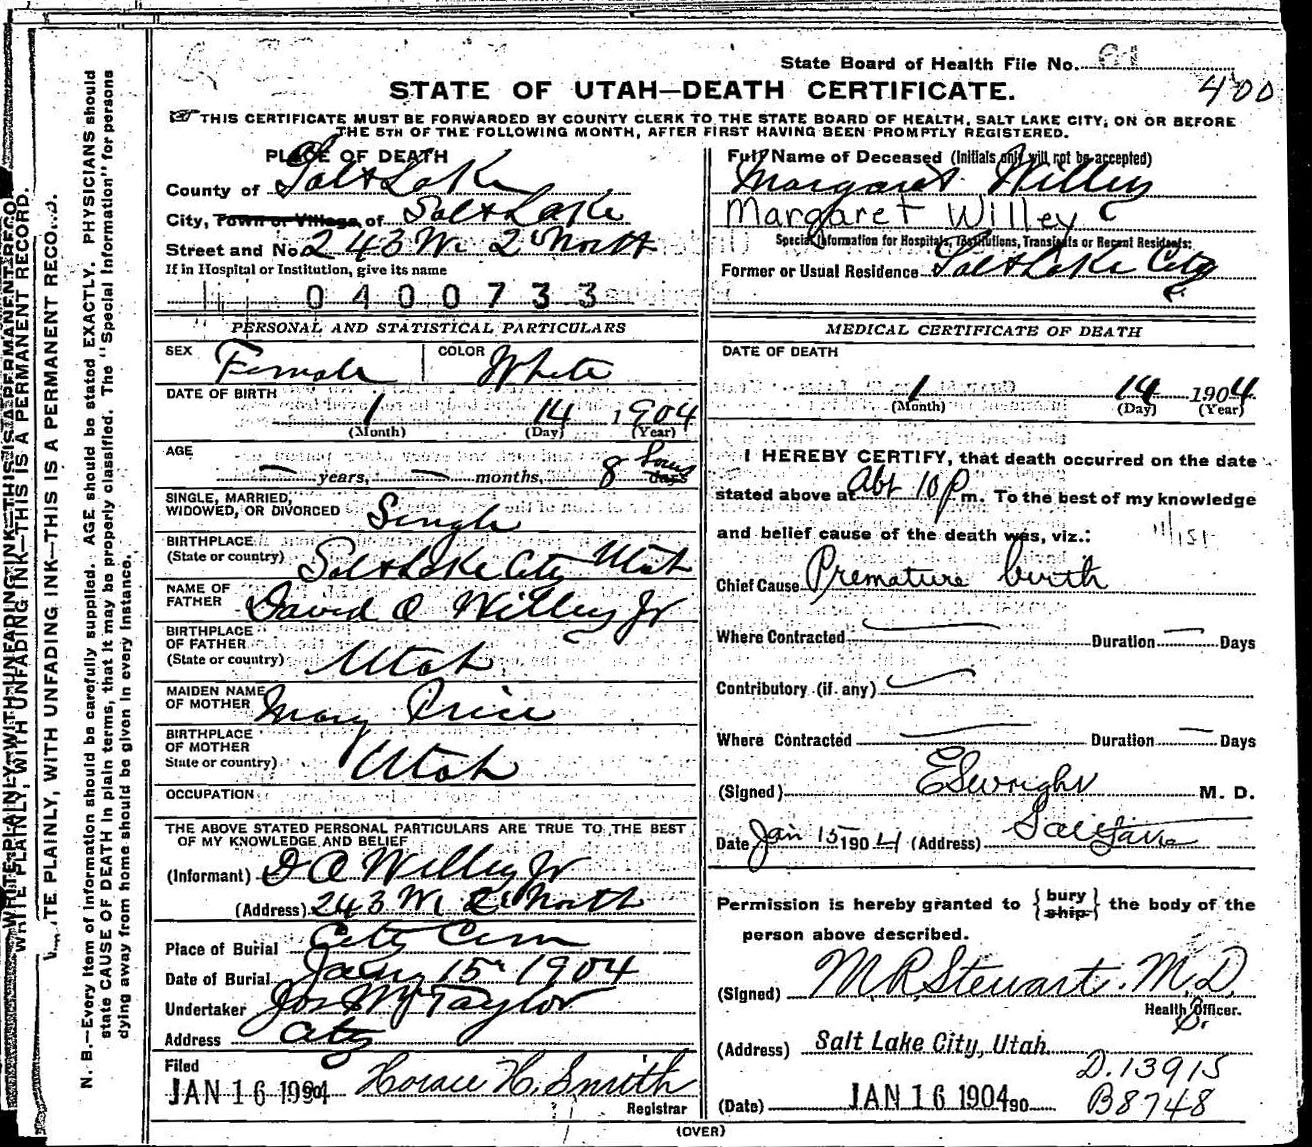 State Board of Health File No. 61
400
STATE OF UTAH—DEATH CERTIFICATE.
THIS CERTIFICATE MUST BE FORWARDED BY COUNTY CLERK TO THE STATE BOARD OF HEALTH, SALT LAKE CITY, ON OR BEFORE
THE 5TH OF THE FOLLOWING MONTH, AFTER FIRST HAVING BEEN PROMPTLY REGISTERED.
PLACE OF DEATH
County of Salt Lake
City, Town or Village of Salt Lake
Street and No. 243 W. 2 North
If in Hospital or Institution, give its name
0400733
Full Name of Deceased (Initials only will not be accepted)
Margaret Willey
Margaret Willey
Special Information for Hospitals, Institutions, Transients or Recent Residents:
Former or Usual Residence Salt Lake City
PERSONAL AND STATISTICAL PARTICULARS
SEX Female COLOR White
DATE OF BIRTH
1 14 1904
(Month) (Day) (Year)
AGE
— years, — months, 8 hours days
SINGLE, MARRIED,
WIDOWED, OR DIVORCED Single
BIRTHPLACE
(State or country) Salt Lake City Utah
NAME OF
FATHER David O Willey Jr
BIRTHPLACE
OF FATHER
(State or country) Utah
MAIDEN NAME
OF MOTHER Mary Price
BIRTHPLACE
OF MOTHER
State or country) Utah
OCCUPATION
THE ABOVE STATED PERSONAL PARTICULARS ARE TRUE TO THE BEST
OF MY KNOWLEDGE AND BELIEF
(Informant) D O Willey Jr
(Address) 243 W. 2 North
Place of Burial City Cem
Date of Burial Jany 15 1904
Undertaker Jos Wm Taylor
Address City
Filed
JAN 16 1904 Horace H. Smith
Registrar
MEDICAL CERTIFICATE OF DEATH
DATE OF DEATH
1 14 1904
(Month) (Day) (Year)
I HEREBY CERTIFY, that death occurred on the date
stated above at Abt 10 P m. To the best of my knowledge
and belief cause of the death was, viz.:
11/151
Chief Cause Premature birth
Where Contracted — Duration — Days
Contributory (if any) —
Where Contracted — Duration — Days
(Signed) E S Wright M. D.
Date Jan 15 1904 (Address) Salt Lake
Permission is hereby granted to {bury ship} the body of the
person above described.
(Signed) M. R. Stewart. M. D.
Health Officer.
(Address) Salt Lake City, Utah.
D. 13915
(Date) JAN 16 1904 90
B8748
(OVER)
N. B.—Every item of information should be carefully supplied. AGE should be stated EXACTLY. PHYSICIANS should
state CAUSE OF DEATH in plain terms, that it may be properly classified. The "Special Information" for persons
dying away from home should be given in every instance.
TE PLAINLY, WITH UNFADING INK—THIS IS A PERMANENT RECORD.
WRITE PLAINLY, WITH UNFADING INK—THIS IS A PERMANENT RECORD.